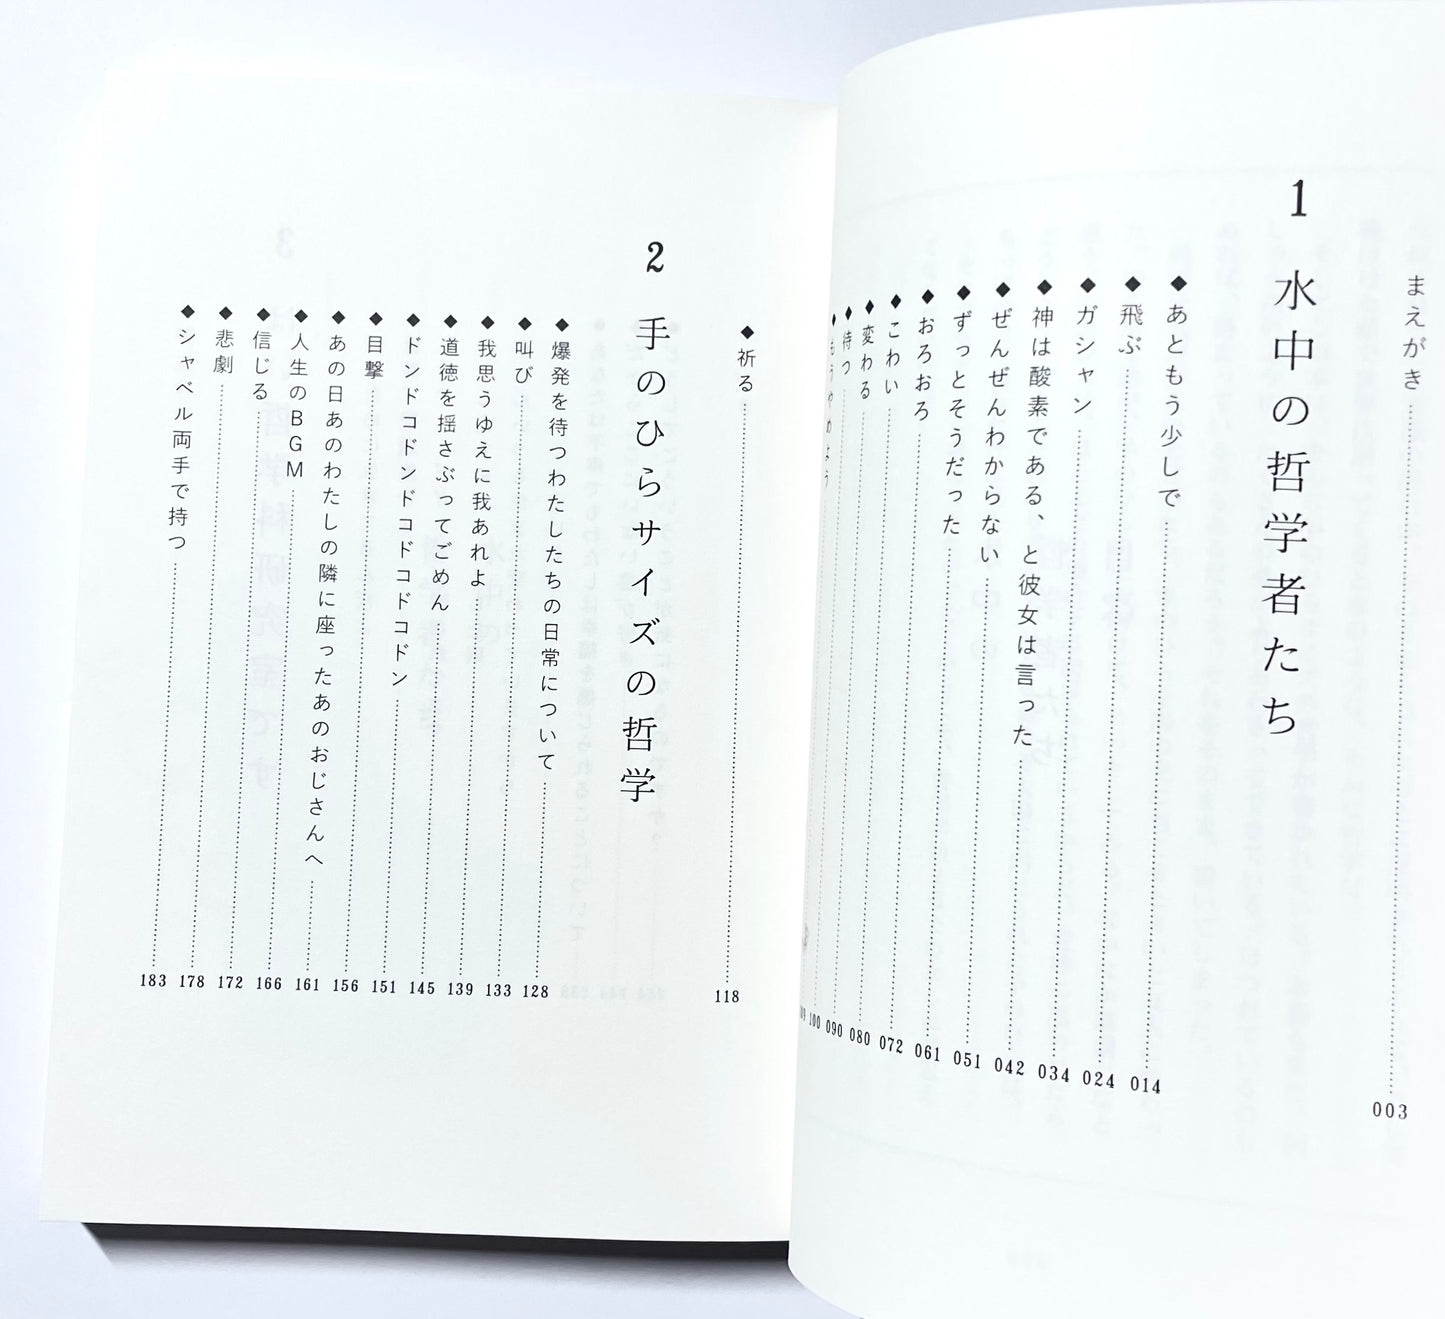 まえがき 003
1 水中の哲学者たち
◆あともう少しで 014
◆飛ぶ 024
◆ガシャン 034
◆神は酸素である、と彼女は言った 042
◆ぜんぜんわからない 051
◆ずっとそうだった 061
◆おろおろ 072
◆こわい 080
◆変わる 090
◆待つ 100
◆もうやめよう
◆祈る 118
2 手のひらサイズの哲学
◆爆発を待つわたしたちの日常について 128
◆叫び 133
◆我思うゆえに我あれよ 139
◆道徳を揺さぶってごめん 145
◆ドンドコドンドコドコドコドン 151
◆目撃 156
◆あの日あのわたしの隣に座ったあのおじさんへ 161
◆人生のBGM 166
◆信じる 172
◆悲劇 178
◆シャベル両手で持つ 183